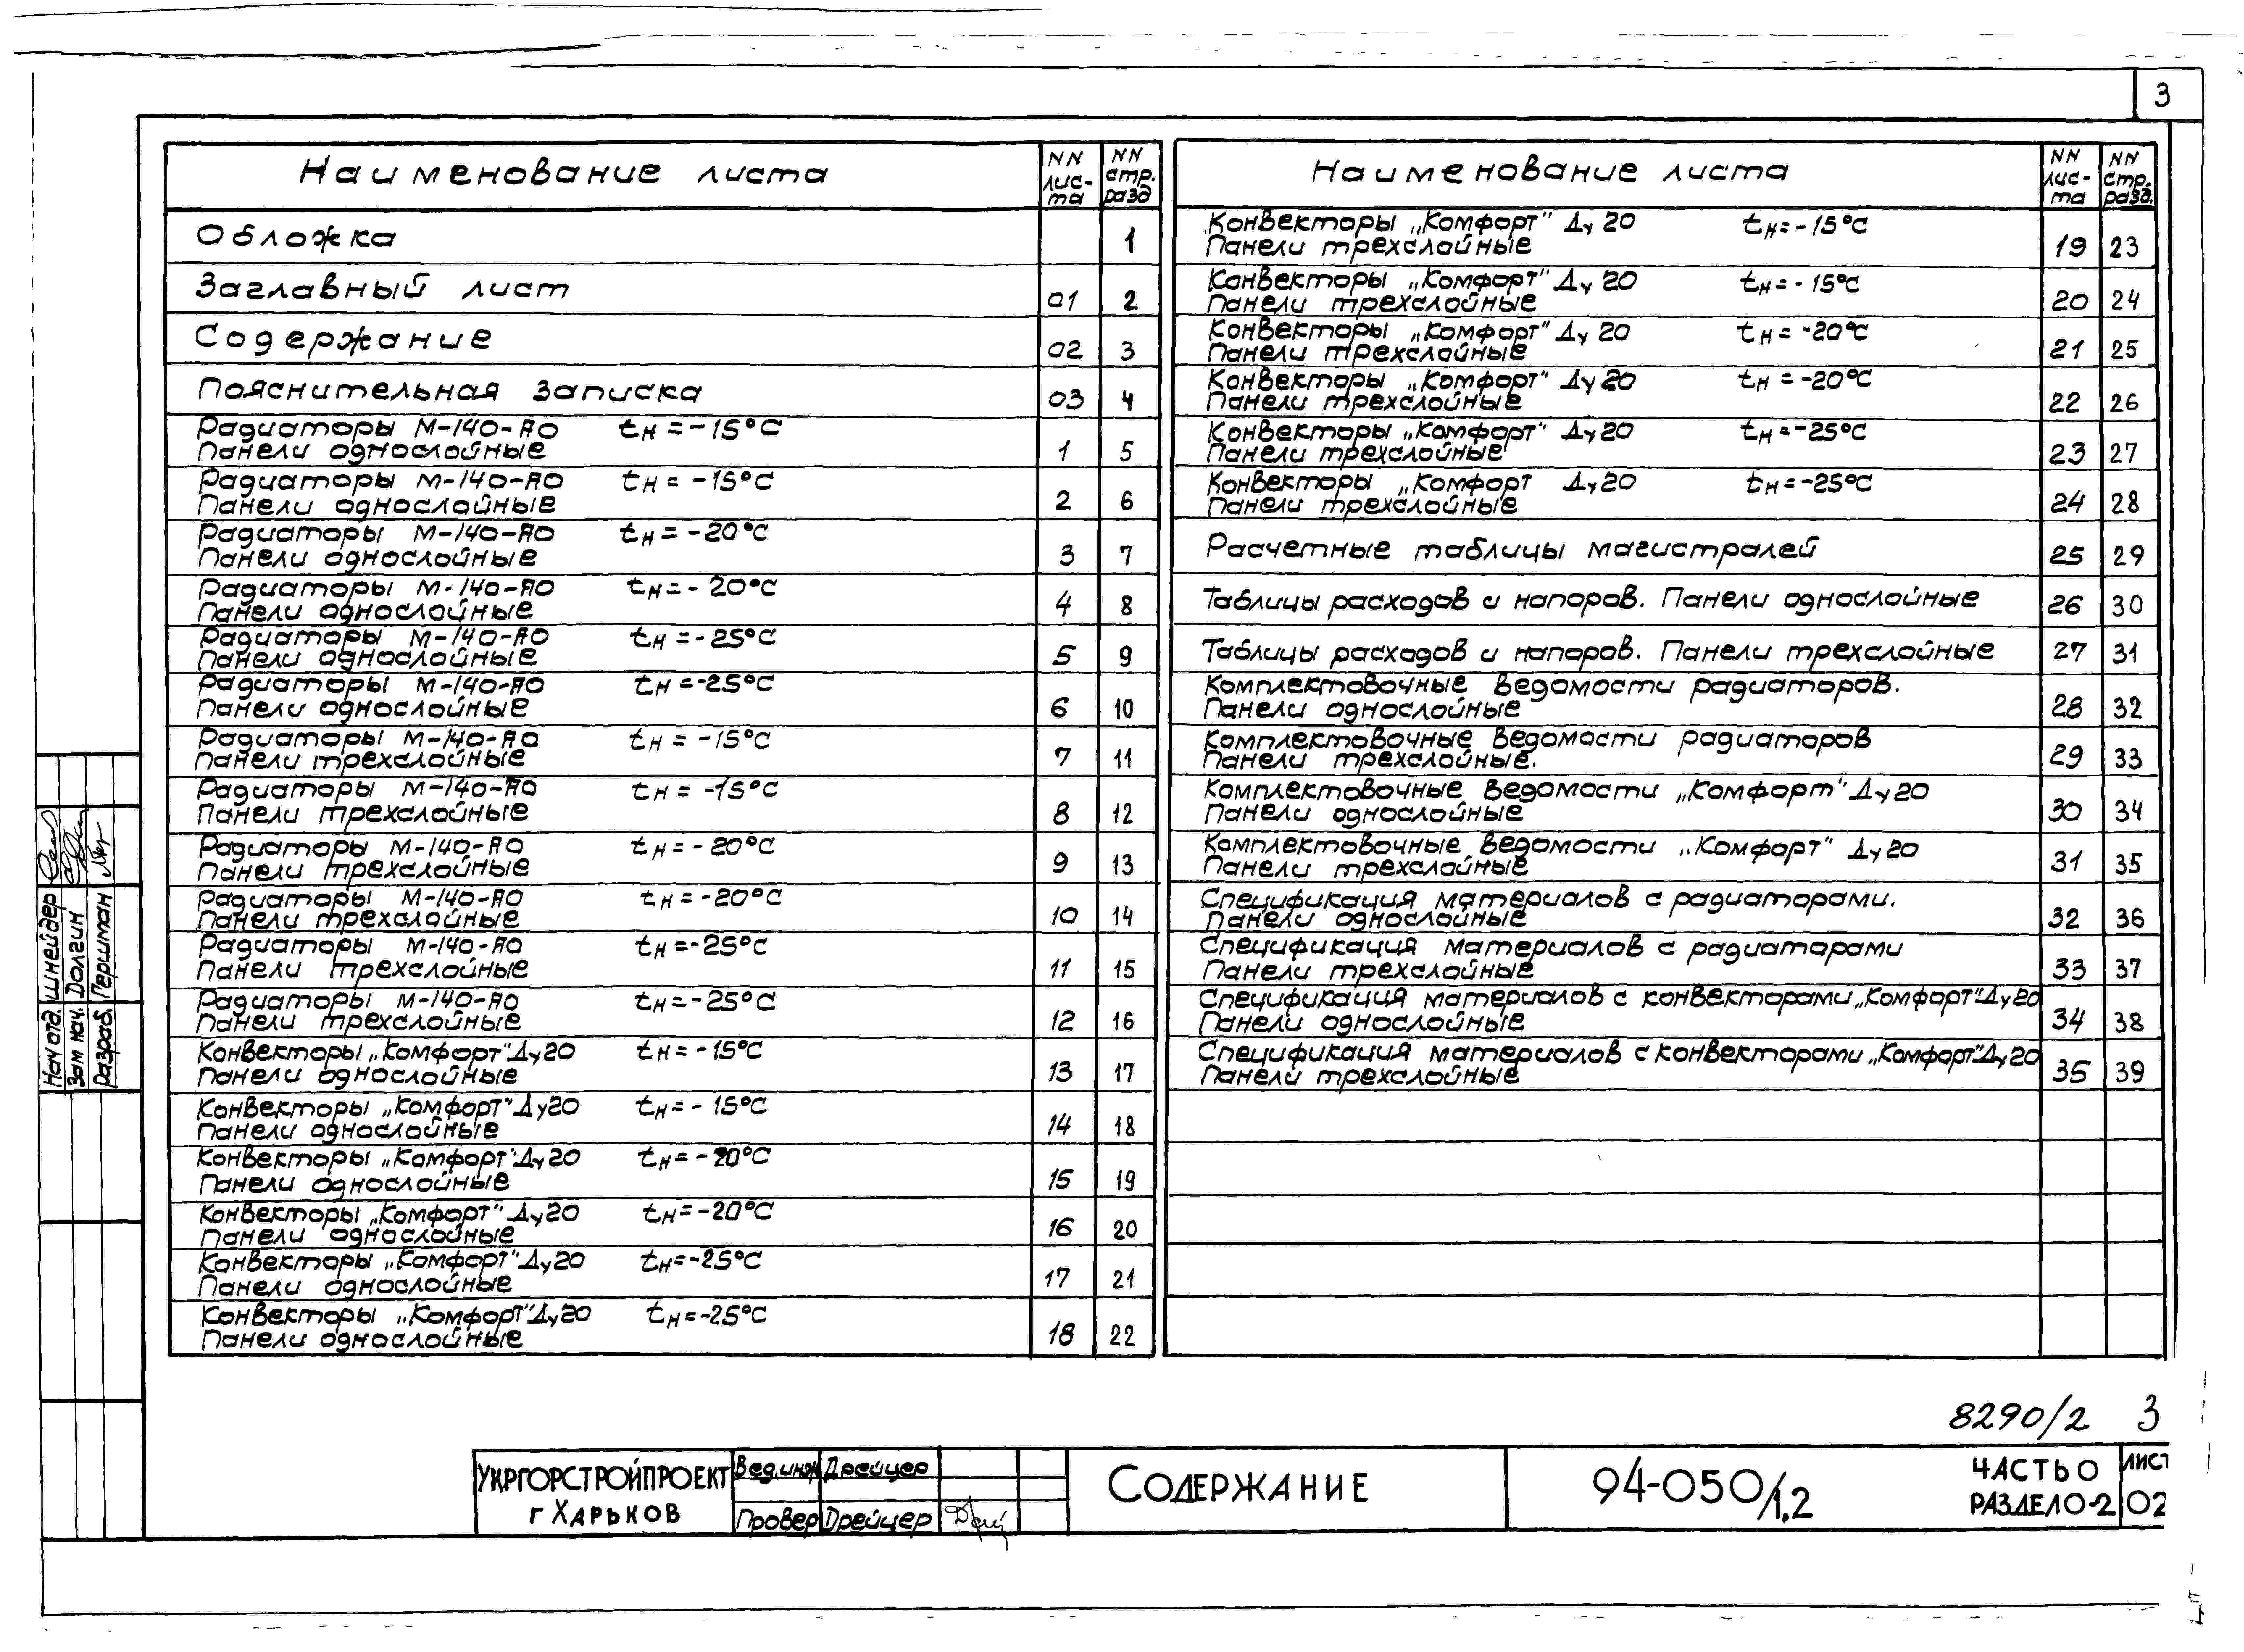 3
Наименование листа
NN лис- та
NN стр. разд
Обложка 1
Заглавный лист 01 2
Содержание 02 3
Пояснительная записка 03 4
Радиаторы М-140-АО tн = -15°С
Панели однослойные 1 5
Радиаторы М-140-АО tн = -15°С
Панели однослойные 2 6
Радиаторы М-140-АО tн = -20°С
Панели однослойные 3 7
Радиаторы М-140-АО tн = - 20°С
Панели однослойные 4 8
Радиаторы М-140-АО tн = -25°С
Панели однослойные 5 9
Радиаторы М-140-АО tн = -25°С
Панели однослойные 6 10
Радиаторы М-140-АО tн = -15°С
Панели трехслойные 7 11
Радиаторы М-140-АО tн = -15°С
Панели трехслойные 8 12
Радиаторы М-140-АО tн = - 20°С
Панели трехслойные 9 13
Радиаторы М-140-АО tн = -20°С
Панели трехслойные 10 14
Радиаторы М-140-АО tн = -25°С
Панели трехслойные 11 15
Радиаторы М-140-АО tн = -25°С
Панели трехслойные 12 16
Конвекторы „Комфорт" Ду20 tн = -15°С
Панели однослойные 13 17
Конвекторы „Комфорт" Ду20 tн = - 15°С
Панели однослойные 14 18
Конвекторы „Комфорт" Ду20 tн = -20°С
Панели однослойные 15 19
Конвекторы „Комфорт" Ду20 tн = -20°С
Панели однослойные 16 20
Конвекторы „Комфорт" Ду20 tн = -25°С
Панели однослойные 17 21
Конвекторы „Комфорт" Ду20 tн = -25°С
Панели однослойные 18 22
Наименование листа
NN лис- та
NN стр. разд.
Конвекторы „Комфорт" Ду 20 tн = -15°С
Панели трехслойные 19 23
Конвекторы „Комфорт" Ду 20 tн = - 15°С
Панели трехслойные 20 24
Конвекторы „Комфорт" Ду 20 tн = -20°С
Панели трехслойные 21 25
Конвекторы „Комфорт" Ду 20 tн = -20°С
Панели трехслойные 22 26
Конвекторы „Комфорт" Ду 20 tн = -25°С
Панели трехслойные 23 27
Конвекторы „Комфорт Ду20 tн = -25°С
Панели трехслойные 24 28
Расчетные таблицы магистралей 25 29
Таблицы расходов и напоров. Панели однослойные 26 30
Таблицы расходов и напоров. Панели трехслойные 27 31
Комплектовочные ведомости радиаторов.
Панели однослойные 28 32
Комплектовочные ведомости радиаторов
Панели трехслойные. 29 33
Комплектовочные ведомости „Комфорт" Ду20
Панели однослойные 30 34
Комплектовочные ведомости „Комфорт" Ду20
Панели трехслойные 31 35
Спецификация материалов с радиаторами.
Панели однослойные 32 36
Спецификация материалов с радиаторами
Панели трехслойные 33 37
Спецификация материалов с конвекторами „Комфорт" Ду20
Панели однослойные 34 38
Спецификация материалов с конвекторами „Комфорт" Ду20
Панели трехслойные 35 39
Нач отд. Шнейдер
Зам нач. Долгин
Разраб. Гершман
8290/2 3
УКРГОРСТРОЙПРОЕКТ
г ХАРЬКОВ
Вед.инж Дрейцер
Провер Дрейцер
СОДЕРЖАНИЕ
94-050/1.2
ЧАСТЬ 0
РАЗДЕЛ 0-2
ЛИСТ
02